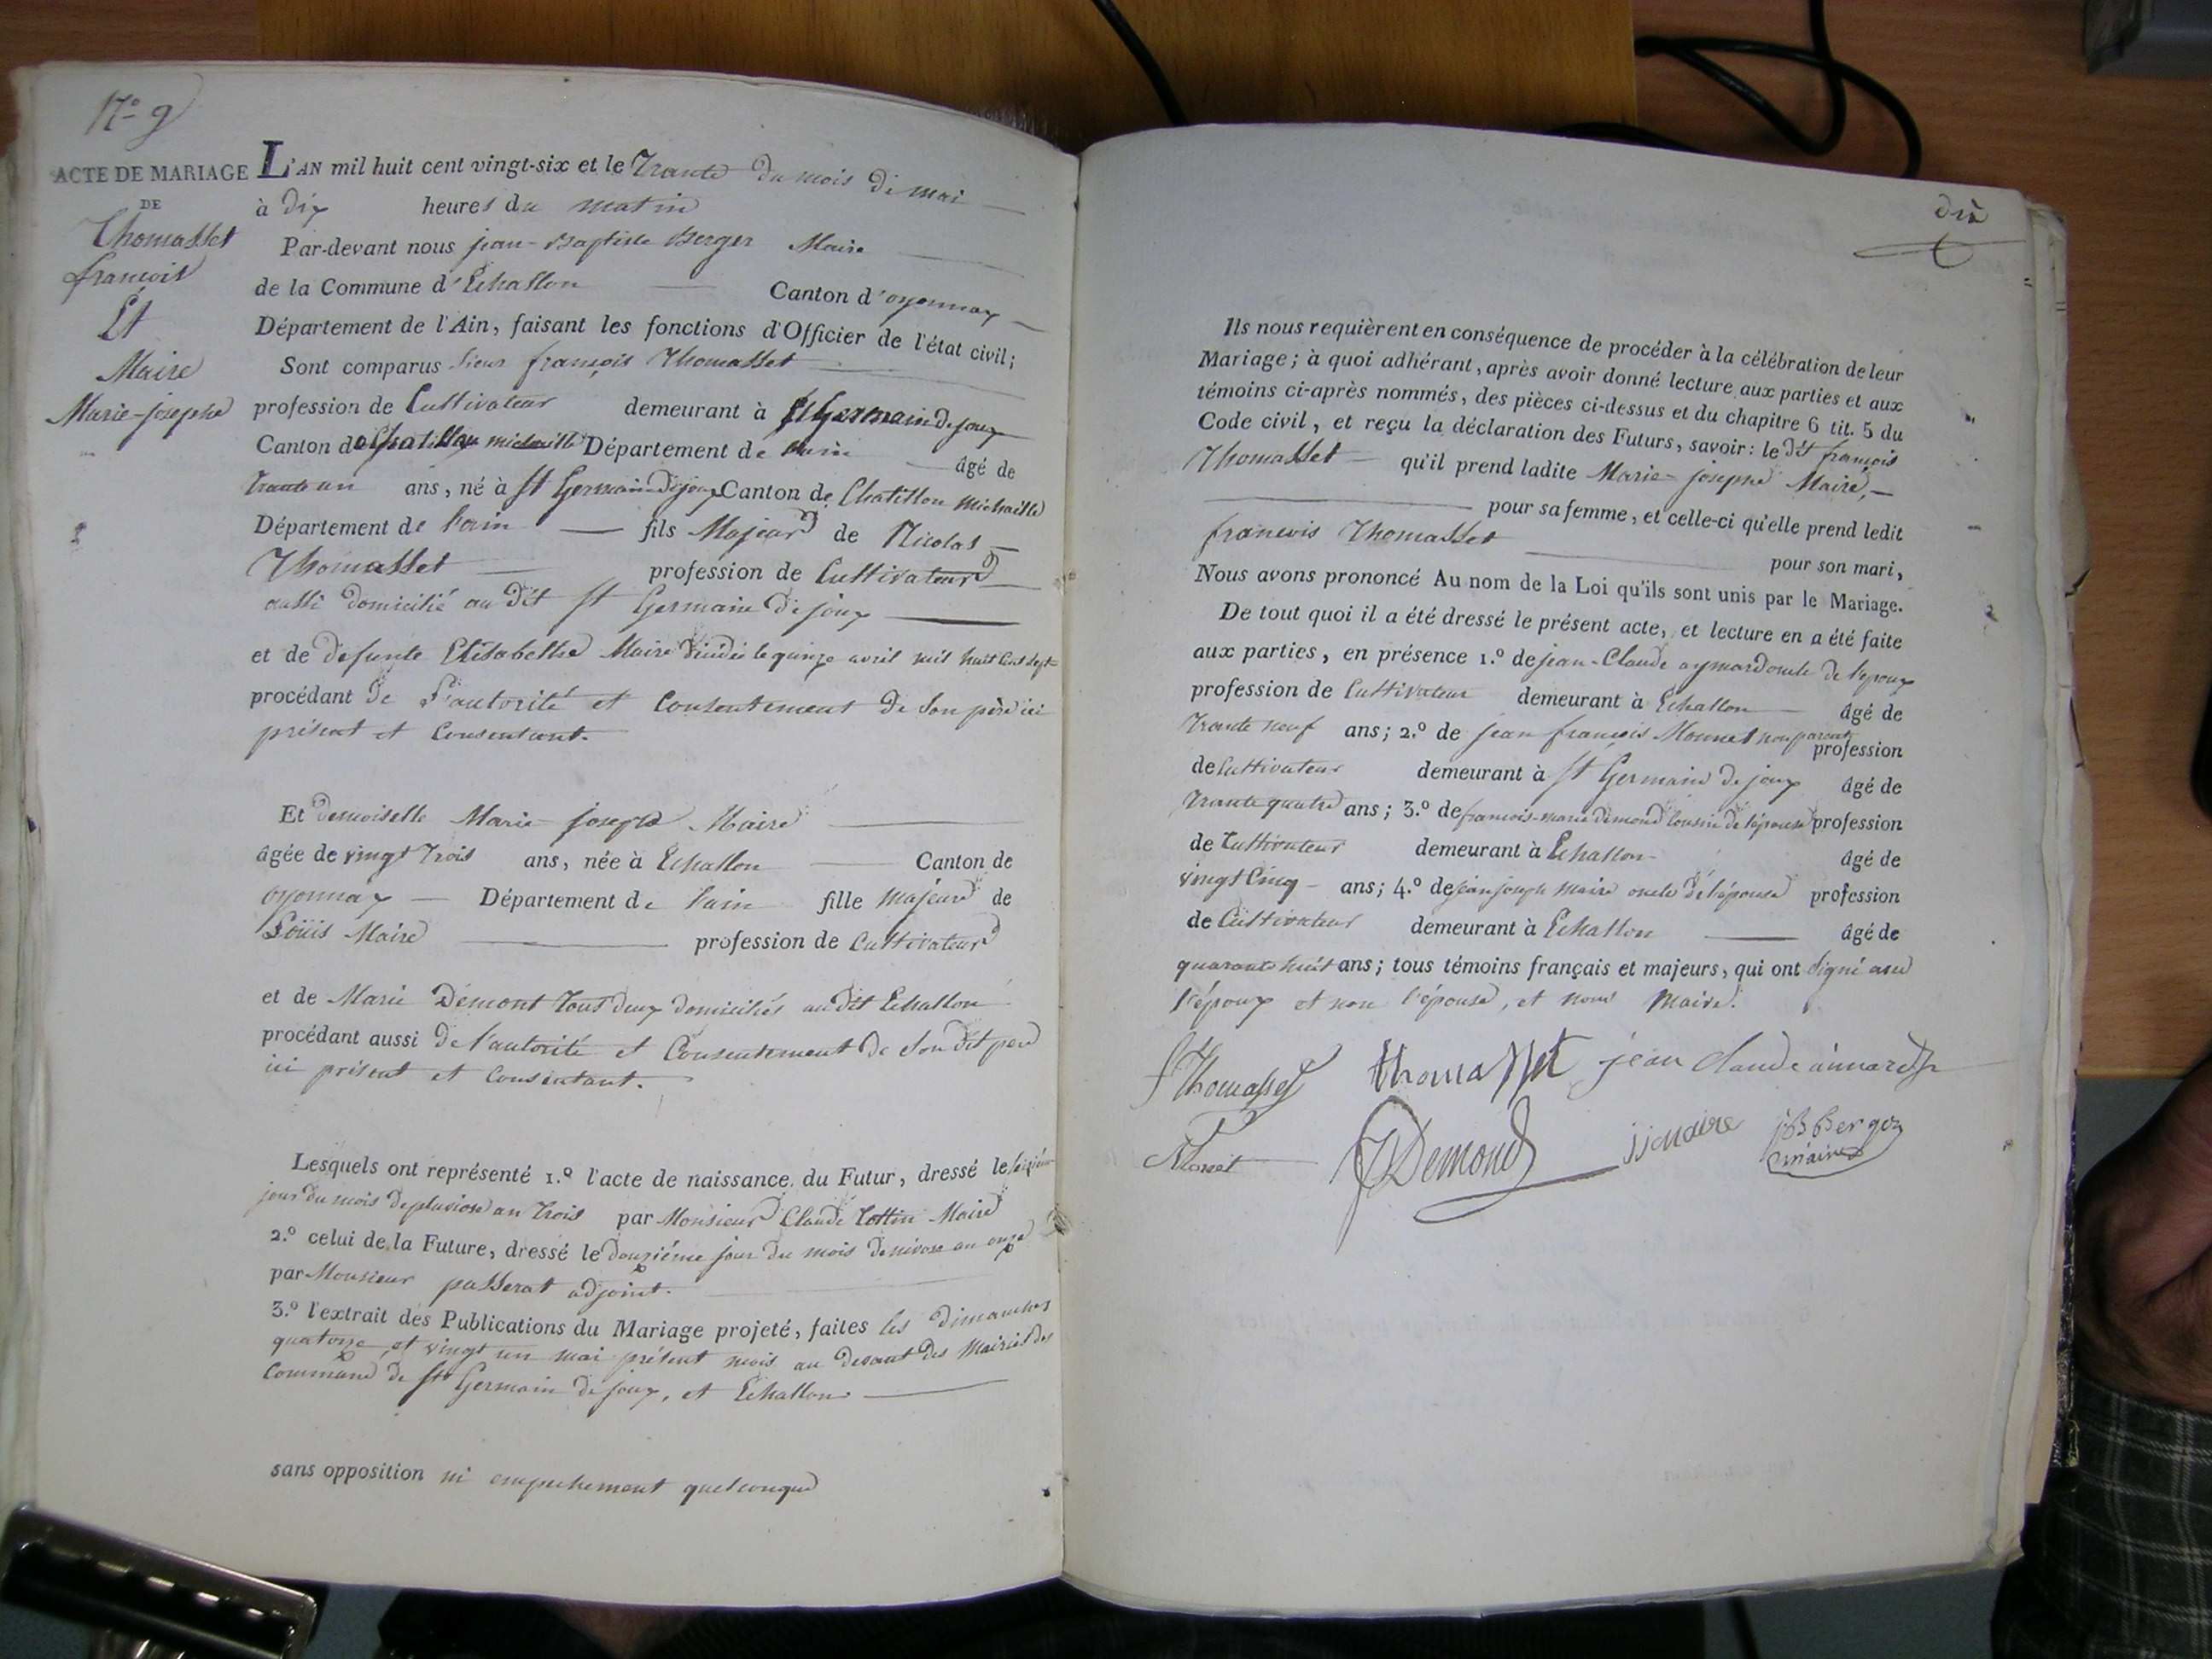 N° 9
ACTE DE MARIAGE
DE
Thomasset
françois
Et
Maire
Marie-josephe
L'AN mil huit cent vingt-six et le Trante du mois de mai
à dix heures du matin
Par-devant nous jean-Baptiste Berger Maire
de la Commune d'Echallon Canton d'oyonnax
Département de l'Ain, faisant les fonctions d'Officier de l'état civil;
Sont comparus Sieur françois Thomasset
profession de Cultivateur demeurant à St Germain de joux
Canton de Chatillon michaille Département de l'ain âgé de
trante un ans, né à St Germain de joux Canton de Chatillon michaille
Département de l'ain fils Majeur de Nicolas
Thomasset profession de Cultivateur
aussi domicilié au dit St Germain de joux
et de defunte Elisabethe Maire décédée le quinze avril mil huit cent sept
procédant de l'autorité et Consentement de son père ici
présent et Consentant.
Et demoiselle Marie josephe Maire
âgée de vingt trois ans, née à Echallon Canton de
oyonnax Département de l'ain fille majeure de
Louis Maire profession de Cultivateur
et de Marie Démont tous deux domiciliés audit Echallon
procédant aussi de l'autorité et Consentement de son dit père
ici présent et consentant.
Lesquels ont représenté 1.º l'acte de naissance du Futur, dressé le
jour du mois de pluviose an trois par Monsieur Claude Tottin Maire
2.º celui de la Future, dressé le douzième jour du mois de nivose an onze
par Monsieur passerat adjoint.
3.º l'extrait des Publications du Mariage projeté, faites les dimanches
quatorze et vingt un mai présent mois au devant des Mairies des
Commune de St Germain de joux, et Echallon
sans opposition ni empechement quelconque
dix
Ils nous requièrent en conséquence de procéder à la célébration de leur
Mariage; à quoi adhérant, après avoir donné lecture aux parties et aux
témoins ci-après nommés, des pièces ci-dessus et du chapitre 6 tit. 5 du
Code civil, et reçu la déclaration des Futurs, savoir: le dit françois
Thomasset qu'il prend ladite Marie-josephe Maire,
pour sa femme, et celle-ci qu'elle prend ledit
francois Thomasset pour son mari,
Nous avons prononcé Au nom de la Loi qu'ils sont unis par le Mariage.
De tout quoi il a été dressé le présent acte, et lecture en a été faite
aux parties, en présence 1.º de jean-Claude aymard oncle de l'epoux
profession de Cultivateur demeurant à Echallon âgé de
trante neuf ans; 2.º de jean françois Monnet non parent profession
de Cultivateur demeurant à St Germain de joux âgé de
trante quatre ans; 3.º de francois-marie démond cousin de l'épouse profession
de Cultivateur demeurant à Echallon âgé de
vingt Cinq ans; 4.º de jean joseph maire oncle de l'épouse profession
de Cultivateur demeurant à Echallon âgé de
quarante huit ans; tous témoins français et majeurs, qui ont signé avec
l'époux et non l'épouse, et nous Maire.
f Thomasset thomasset jean claude aimard
Monet Demond jj maire JB Berger
maire